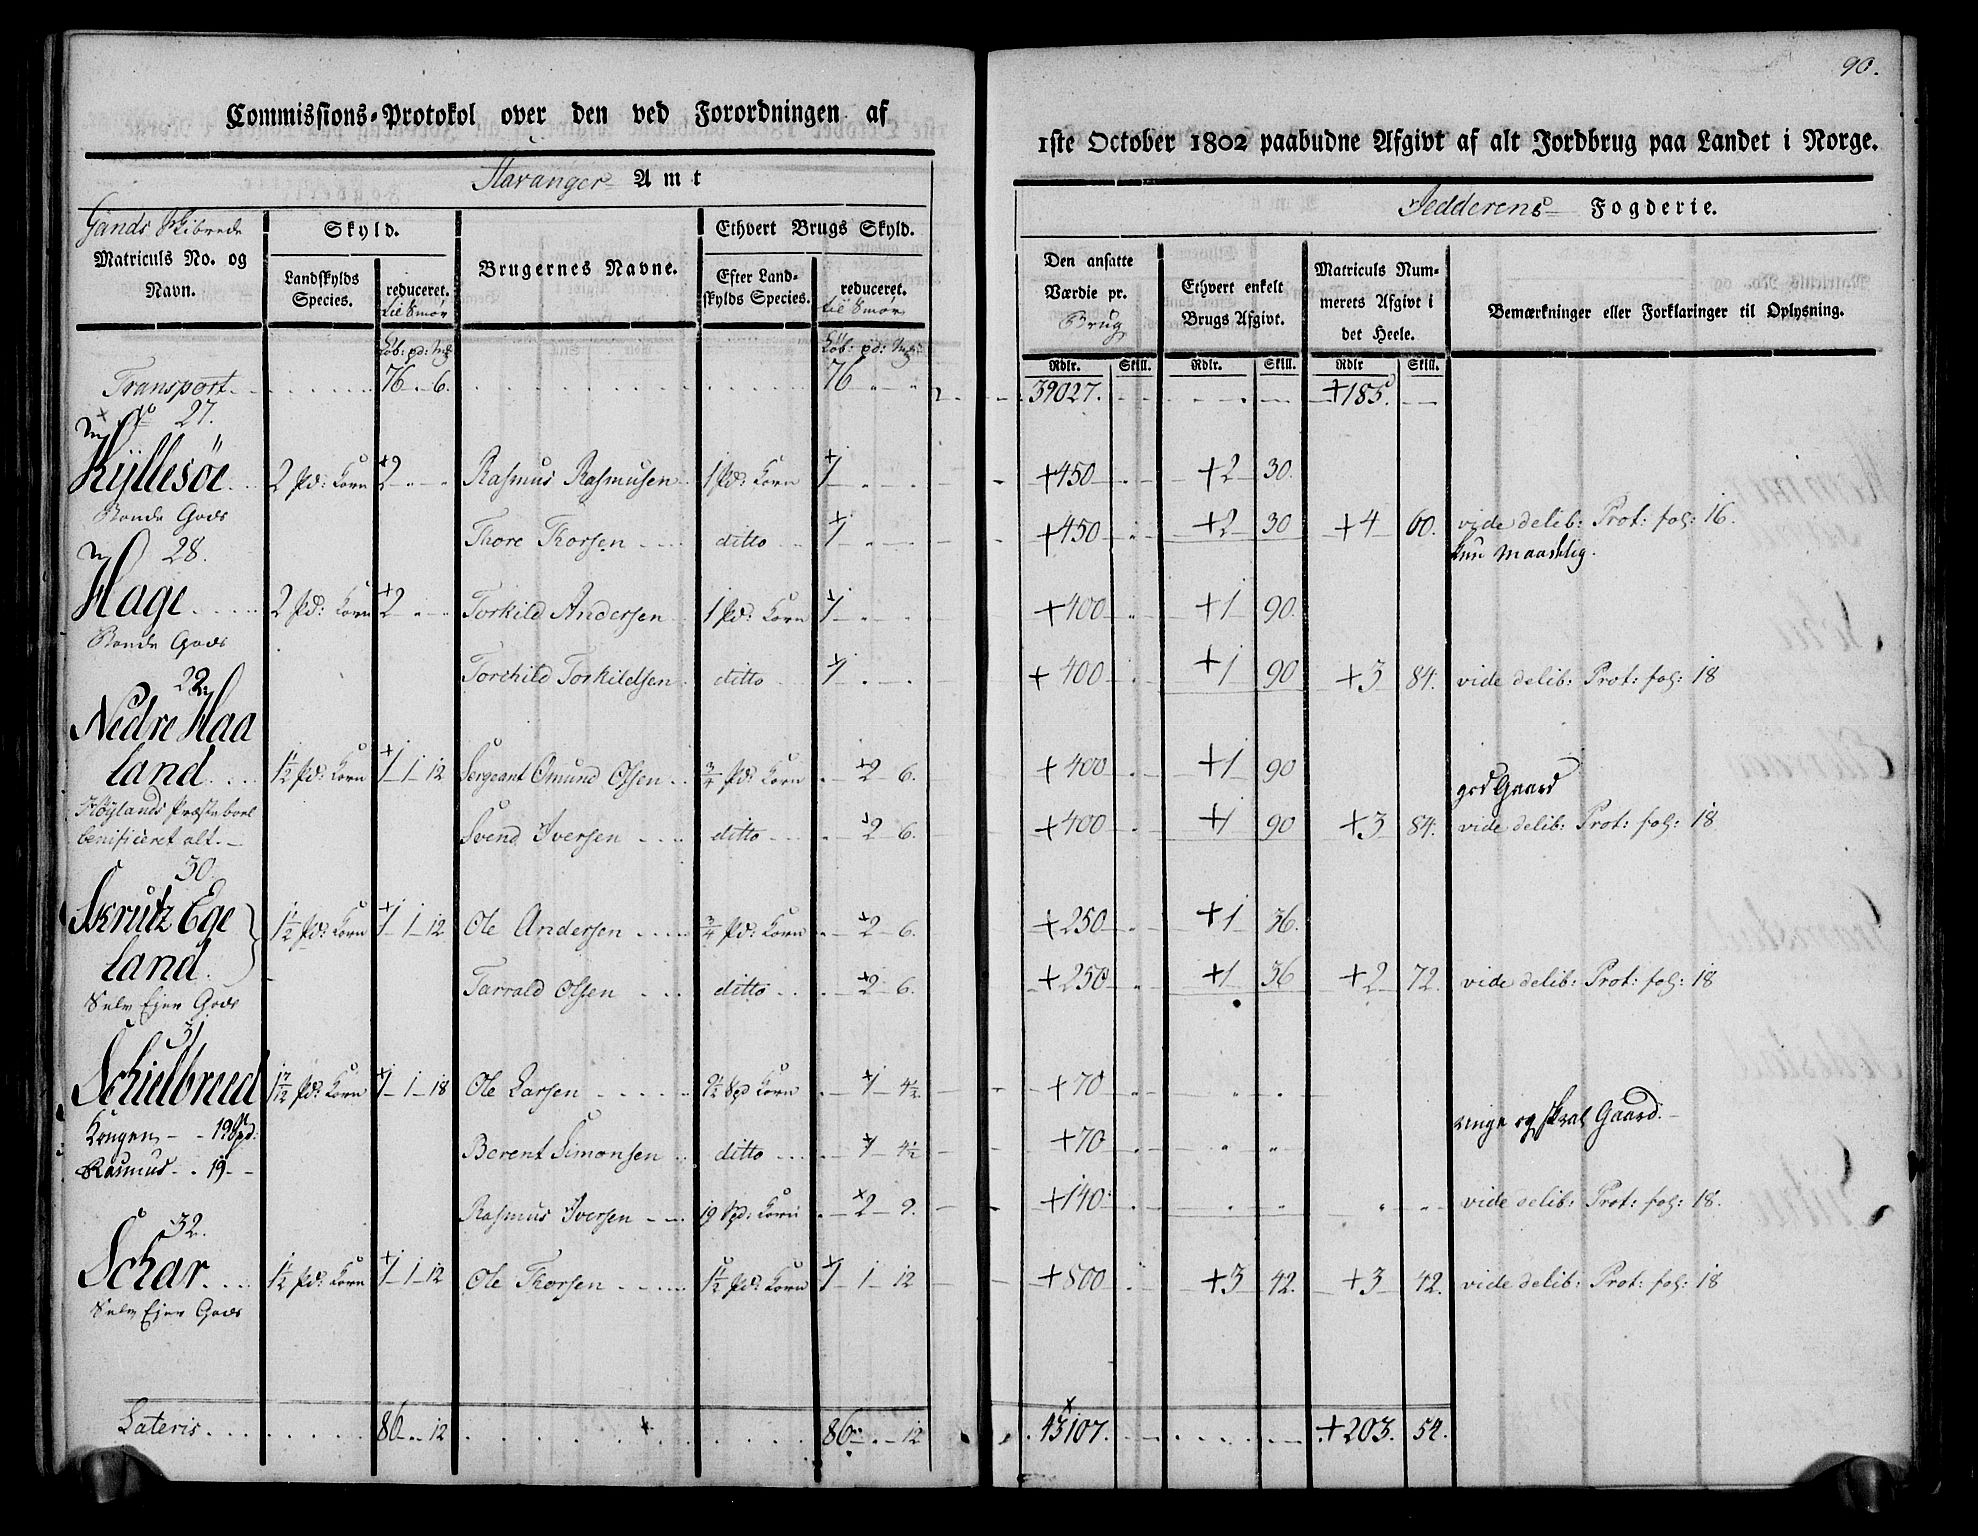 90.
Commissions-Protokol over den ved Forordningen af
1ste October 1802 paabudne Afgivt af alt Jordbrug paa Landet i Norge.
Stavanger Amt
Jedderens Fogderie.
Gands Skibrede
Matriculs No. og Navn.
Skyld.
Landskylds Species.
reduceret. til Smør
Brugernes Navne.
Ethvert Brugs Skyld.
Efter Landskylds Species.
reduceret. til Smør
Den ansatte Værdie pr. Brug
Ethvert enkelt Brugs Afgivt.
Matriculs Nummerets Afgivt i det Heele.
Bemærkninger eller Forklaringer til Oplysning.
Rdlr. Skill. Rdlr. Skill. Rdlr Skill.
Transport 76 - 6. 76 39027. +185.
No 27.
Kyllesøe 2 Pd: Korn 2 Rasmus Rasmusen 1 Pd: Korn 1 +450 +2 30.
Bonde Gods
Thore Thorsen ditto 1 +450 +2 30 +4 60. vide delib: Prot: fol: 16.
kun maadelig.
28.
Hage 2 Pd: Korn 2 Torkild Andersen 1 Pd: Korn 1 +400 +1 90.
Bonde Gods
Torchild Torkildsen ditto 1 +400 +1 90 +3 84. vide delib: Prot: fol: 18
Nedre Haa
land 1½ Pd: Korn 1 - 1 - 12 Sergeant Omund Olsen ¾ Pd: Korn 2 - 6. +400 +1 90
god Gaard
Høylands Præstebord
benificeret alt.
Svend Iversen ditto 2 - 6. +400 +1 90 +3 84. vide delib: Prot: fol: 18
30.
Skrutz Ege
land. 1½ Pd: Korn 1 - 1 - 12 Ole Andersen ¾ Pd: Korn 2 - 6. +250 +1 36.
Selv Ejer Gods
Tarrald Olsen ditto 2 - 6. +250 +1 36 +2 72. vide delib: Prot: fol: 18
31
Schielbreed 1 7/12 Pd: Korn 1 - 1 - 18 Ole Larsen 9½ Spd Korn 1 - 4½. +70
ringe og skral Gaard.
Kongen - 19 Spd:
Berent Simonsen ditto 1 - 4½ +70
Rasmus - 19 -
Rasmus Iversen 19 Spd: Korn 2 - 9. +140 vide delib: Prot: fol: 18.
32.
Schar 1½ Pd: Korn 1 - 1 - 12 Ole Thorsen 1½ Pd: Korn 1 - 1 - 12 +800 +3 42. +3 42. vide delib: Prot: fol: 18
Selv Ejer Gods
Lateris 86 - 12 86 - 12 43107. +203. 54.